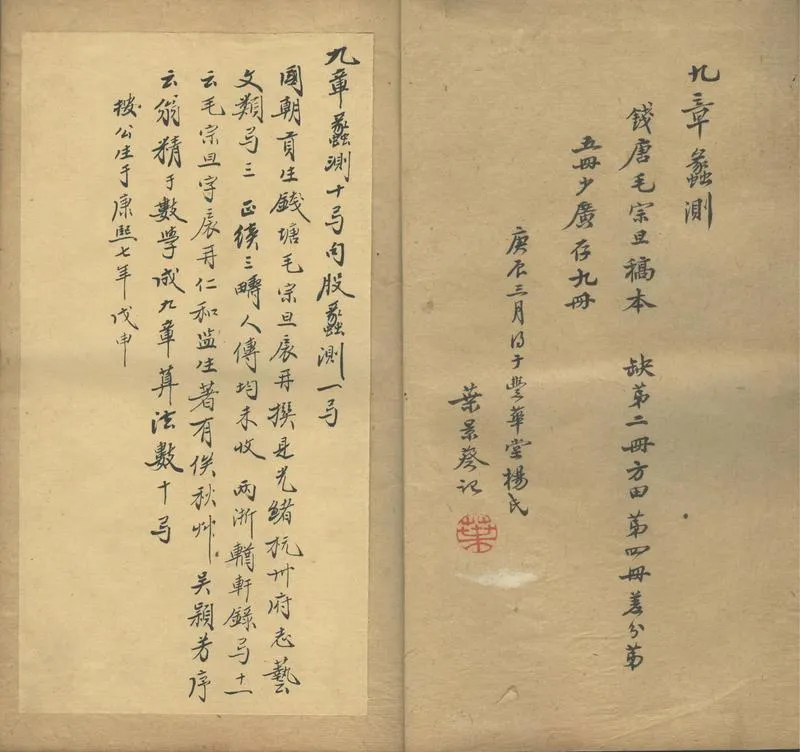 九章蠡測
錢唐毛宗旦稿本　缺第二冊方田第四冊差分第
五冊少廣存九冊
庚辰三月得于豐華堂楊氏
葉景葵記
葉
九章蠡測十弓句股蠡測一弓
國朝貢生錢塘毛宗旦扆再撰見光緒杭州府志藝
文類弓三 正續三疇人傳均未收 兩浙輶軒錄弓十一
云毛宗旦字扆再仁和監生著有俟秋艸 吳穎芳序
云翁精于數學成九章算法數十弓
按公生于康熙七年戊申